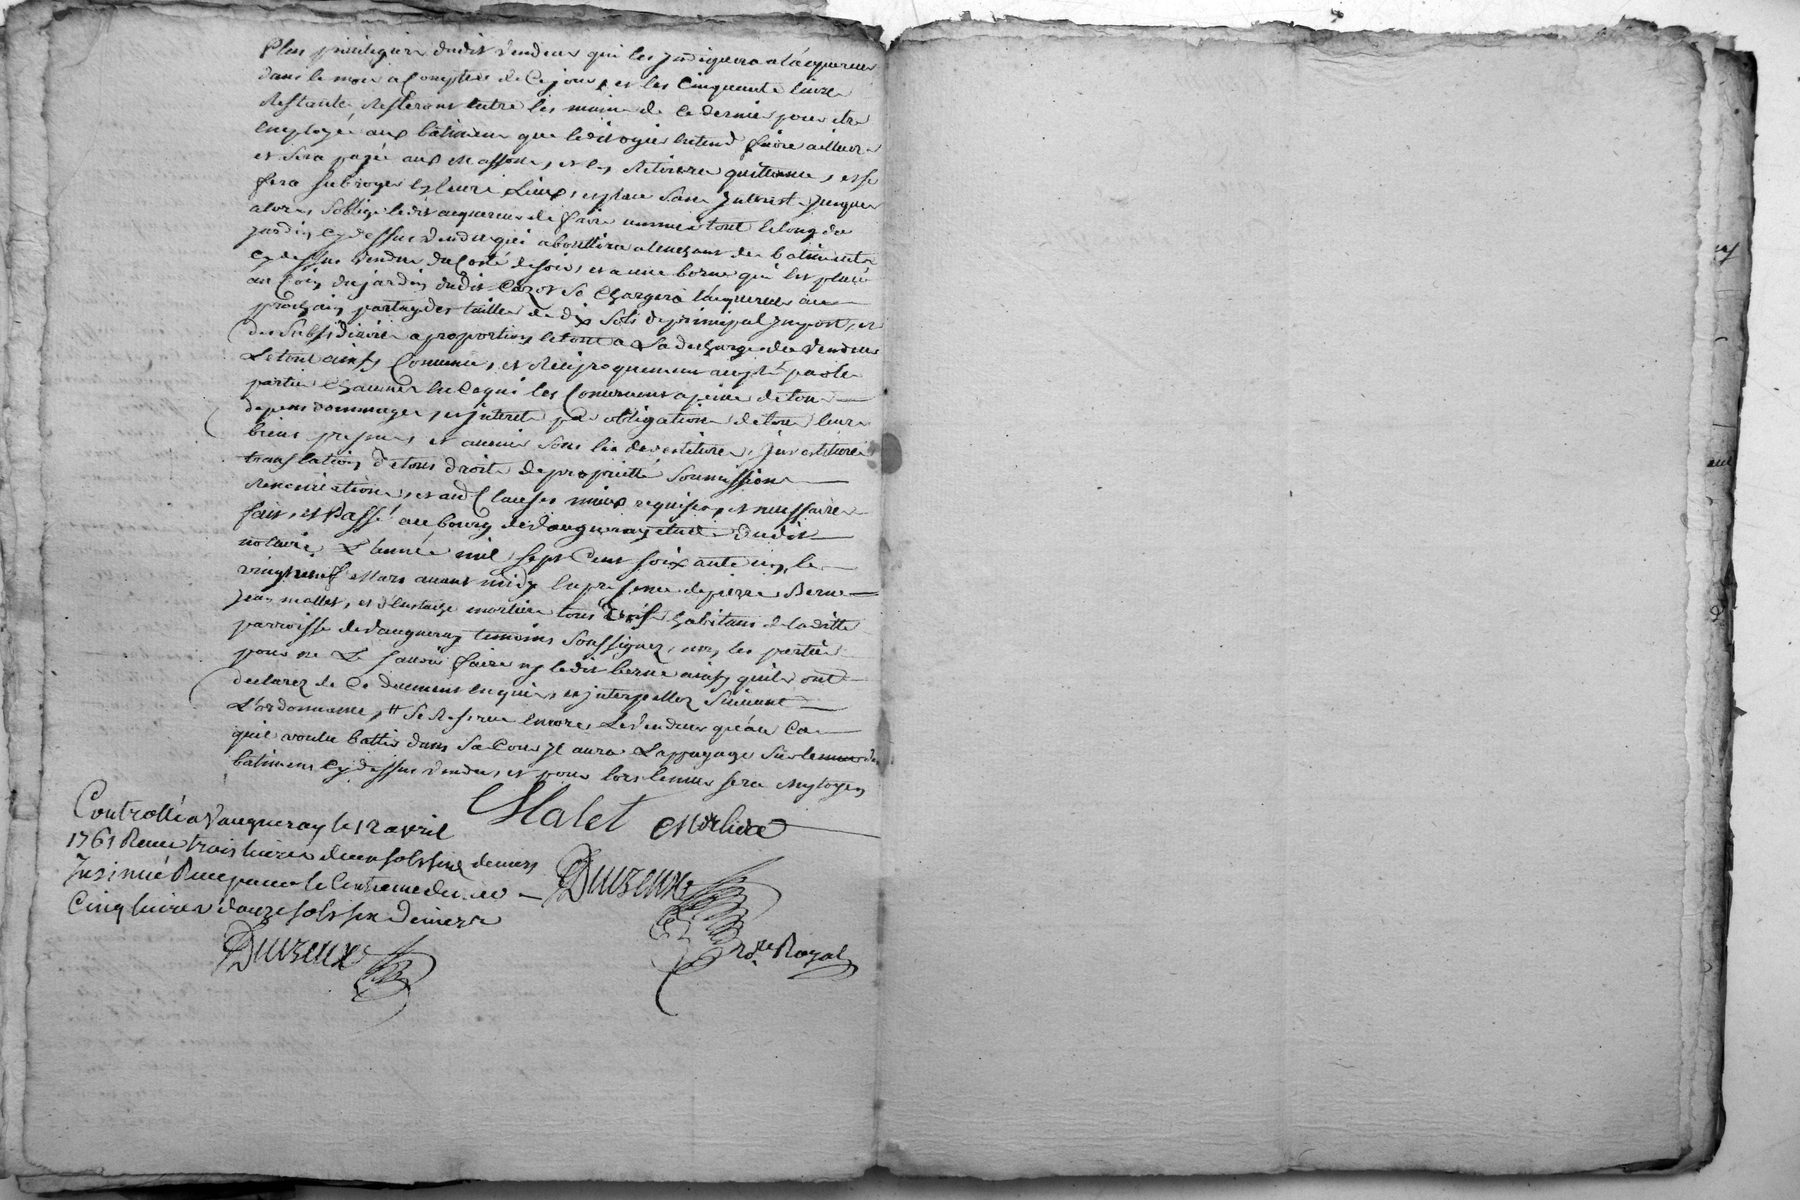 Plus privilegies dudit vendeur qui les Indiquera a lacquereur
dans le mois a Compter de Ce jour, et les Cinquante livres
Restante Resteront entre les mains de Ce dernier pour etre
Employé aux batimens que ledit entend faire ailleurs
et sera payée aux Massons, et en Retirera quittance, et se
fera subroger en leurs Lieux, et place sans Interest Jusques
alors, soblige ledit acquereur de faire un mur tout le long du
jardin Cy dessus vendu qui aboutira a langard des batiments
Cy dessus vendu du Costé de soir, et a une borne qui est placée
au Coin du jardin dudit Cazot Se Chargera lacquereur au
prochain partage des tailles de dix sols de principal Impost, et
des Subsidiaires a proportion le tout a La decharge du Vendeur
Le tout ainsy Convenu, et Reciproquement accepté par les
parties Chacunes en Ce qui les Concernent a peine de tous
depens dommages, et interets par obligation de tous leurs
biens presents, et avenir sous les devestitures, Investitures
translation de tous droits de proprietté Soumissions
Renonciations, et aud Clauses mieux requises, et necessaires
fait, et Passé au bourg de Vaugneray etude dudit
notaire L'année mil sept Cent soixante un, le
vingt neuf Mars avant midy En presence de pierre Berne
Jean mallet, et deustache morliere tous trois habitans de laditte
parroisse de Vaugneray temoins Soussignez, non les parties
pour ne Le Sauoir faire ny ledit berne ainsy quils ont
declarez de Ce duement enquis, et interpellez Suivant
L'ordonnance, # Se Reserve encore, Le Vendeur qu'au Cas
qu'il voulu battir dans Sa Cour Il aura Lappuyage Sur le mur du
batiment Cy dessus vendu, et pour lors le mur sera Mytoyen
Malet Morliere
Controllé a Vaugneray le 12 avril
1761 Reçu trois livres deux sols six deniers
Insinué Reçu pour le Centieme der
Cinq livres douze sols six Deniers
Duvreux
Duvreux
No.re Royal